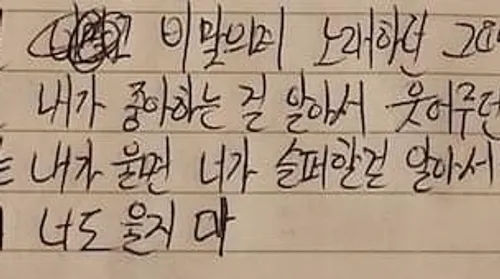 비 맞으며 노래하던
내가 좋아하는 걸 알아서 웃어주던
내가 울면 너가 슬퍼할걸 알아서
너도 울지 마